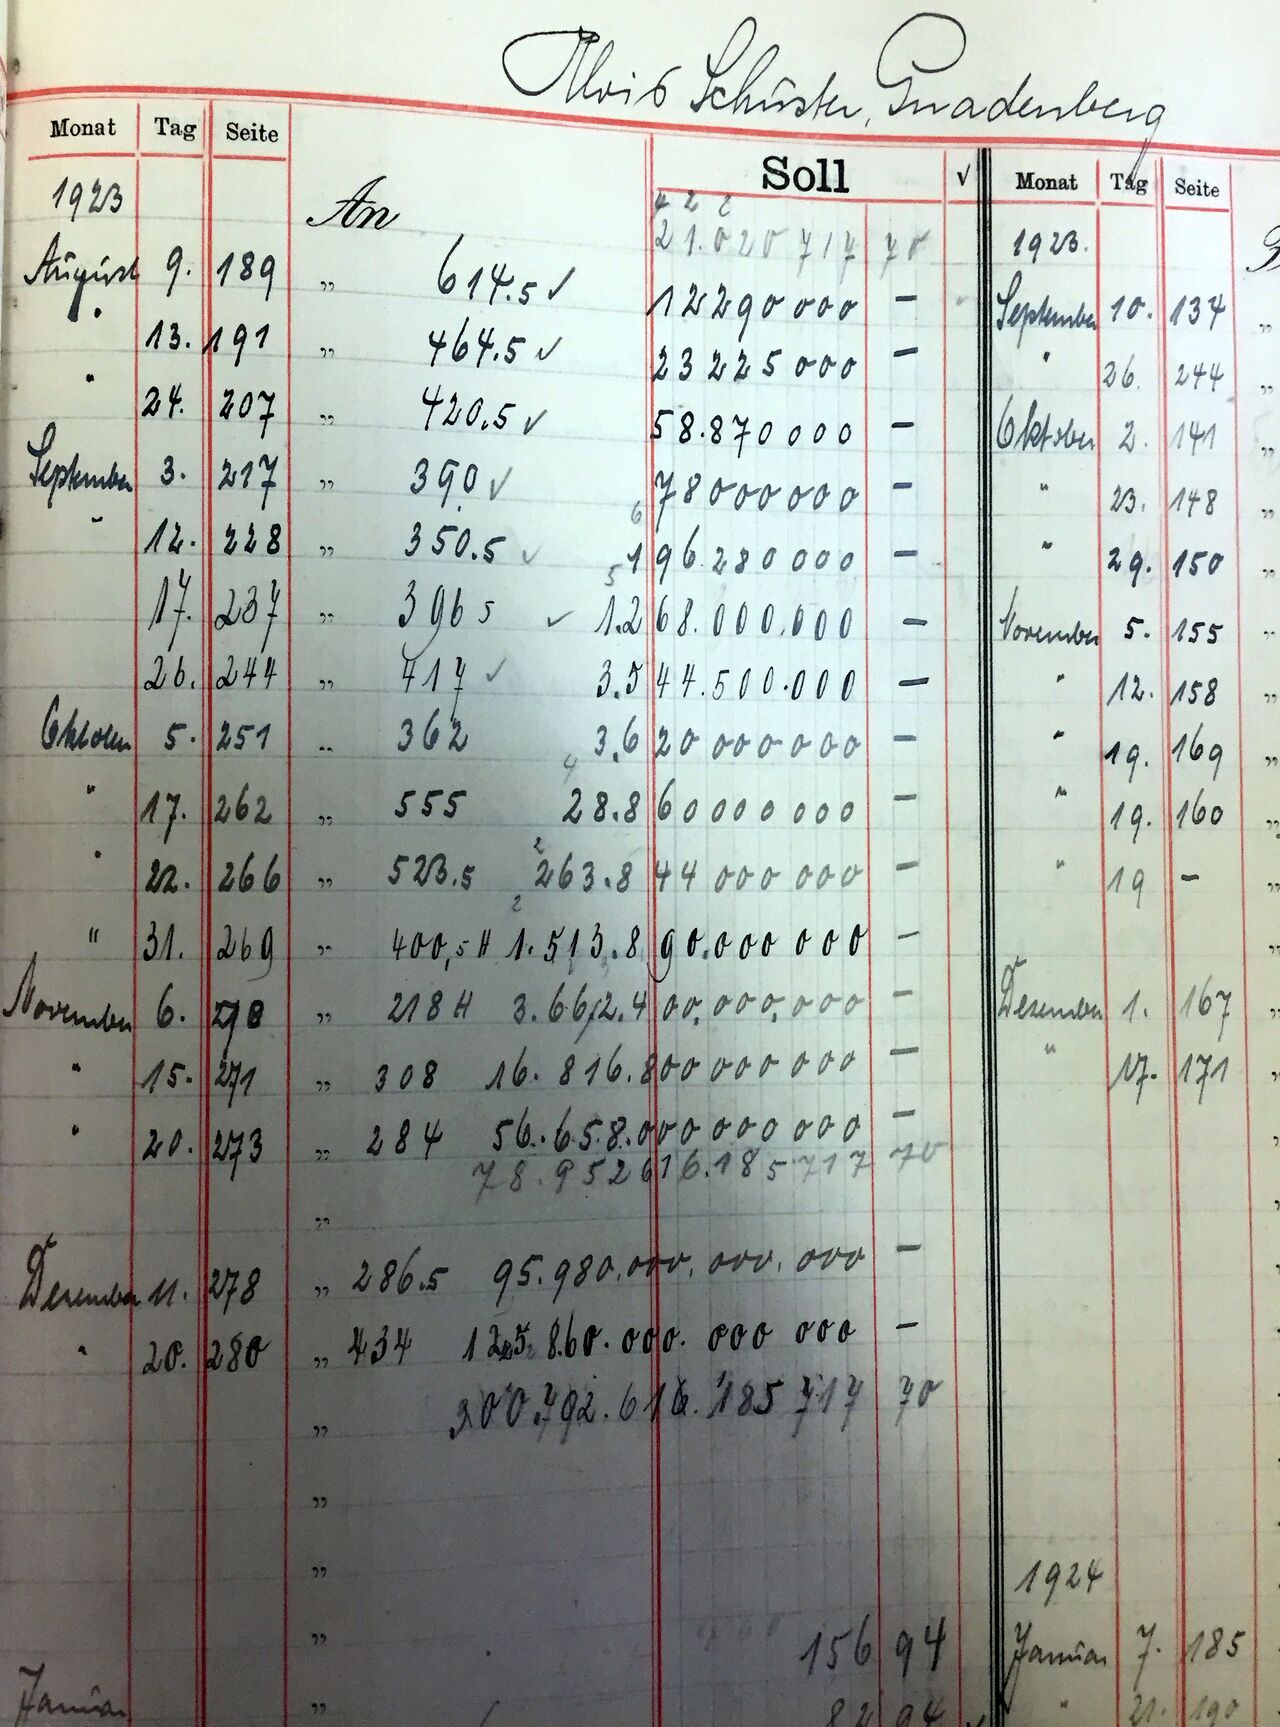 Alois Schuster, Gnadenberg
Monat Tag Seite Soll √ Monat Tag Seite
1923 An 21.020 717 70 1923.
August 9. 189 " 614.5 ✓ 12 290 000 — September 10. 134 "
" 13. 191 " 464.5 ✓ 23 225 000 — " 26. 244 "
" 24. 207 " 420.5 ✓ 58.870 000 — Oktober 2. 141 "
September 3. 217 " 390 ✓ 78 000 000 — " 23. 148 "
" 12. 228 " 350.5 ✓ 196.280 000 — " 29. 150 "
17. 237 " 396 5 ✓ 1.268.000.000 — November 5. 155 "
26. 244 " 417 ✓ 3.544.500.000 — " 12. 158 "
Oktober 5. 251 " 362 3.620 000 000 — " 19. 169 "
" 17. 262 " 555 28.860 000 000 — " 19. 160 "
" 22. 266 " 523.5 263.844 000 000 — " 19 — "
" 31. 269 " 400,5 H 1.513.890.000 000 — "
November 6. " 218 H 3.662.400.000.000 — Dezember 1. 167 "
" 15. 271 " 308 16.816.800 000 000 — " 17. 171 "
" 20. 273 " 284 56.658.000 000 000 —
78.952 616.185 717 70
"
Dezember 11. 278 " 286.5 95.980.000.000.000 —
" 20. 280 " 434 125.860.000.000 000 —
" 300.792.616.185 717 70
"
" 1924
" 156 94 Januar 7. 185
Januar " 82 94 ✓ " 21. 190